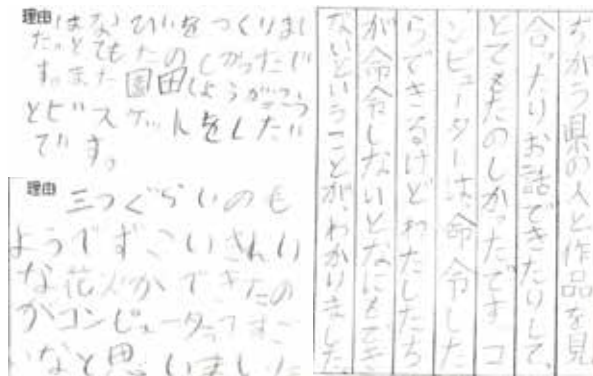 理由
はなびいをつくりまし
た。とてもたのしかったで
す。また園田しょうがっこう
とビスケットをしたい
です。
理由
三つぐらいのも
ようですごいきれい
な花火ができたの
がコンピュータってすご
いなと思いました
ちがう県の人と作品を見
合ったりお話できたりして、
とてもたのしかったです。コ
ンピューターは、命令した
らできるけどわたしたち
が命令しないとなにもでき
ないということが、わかりました。